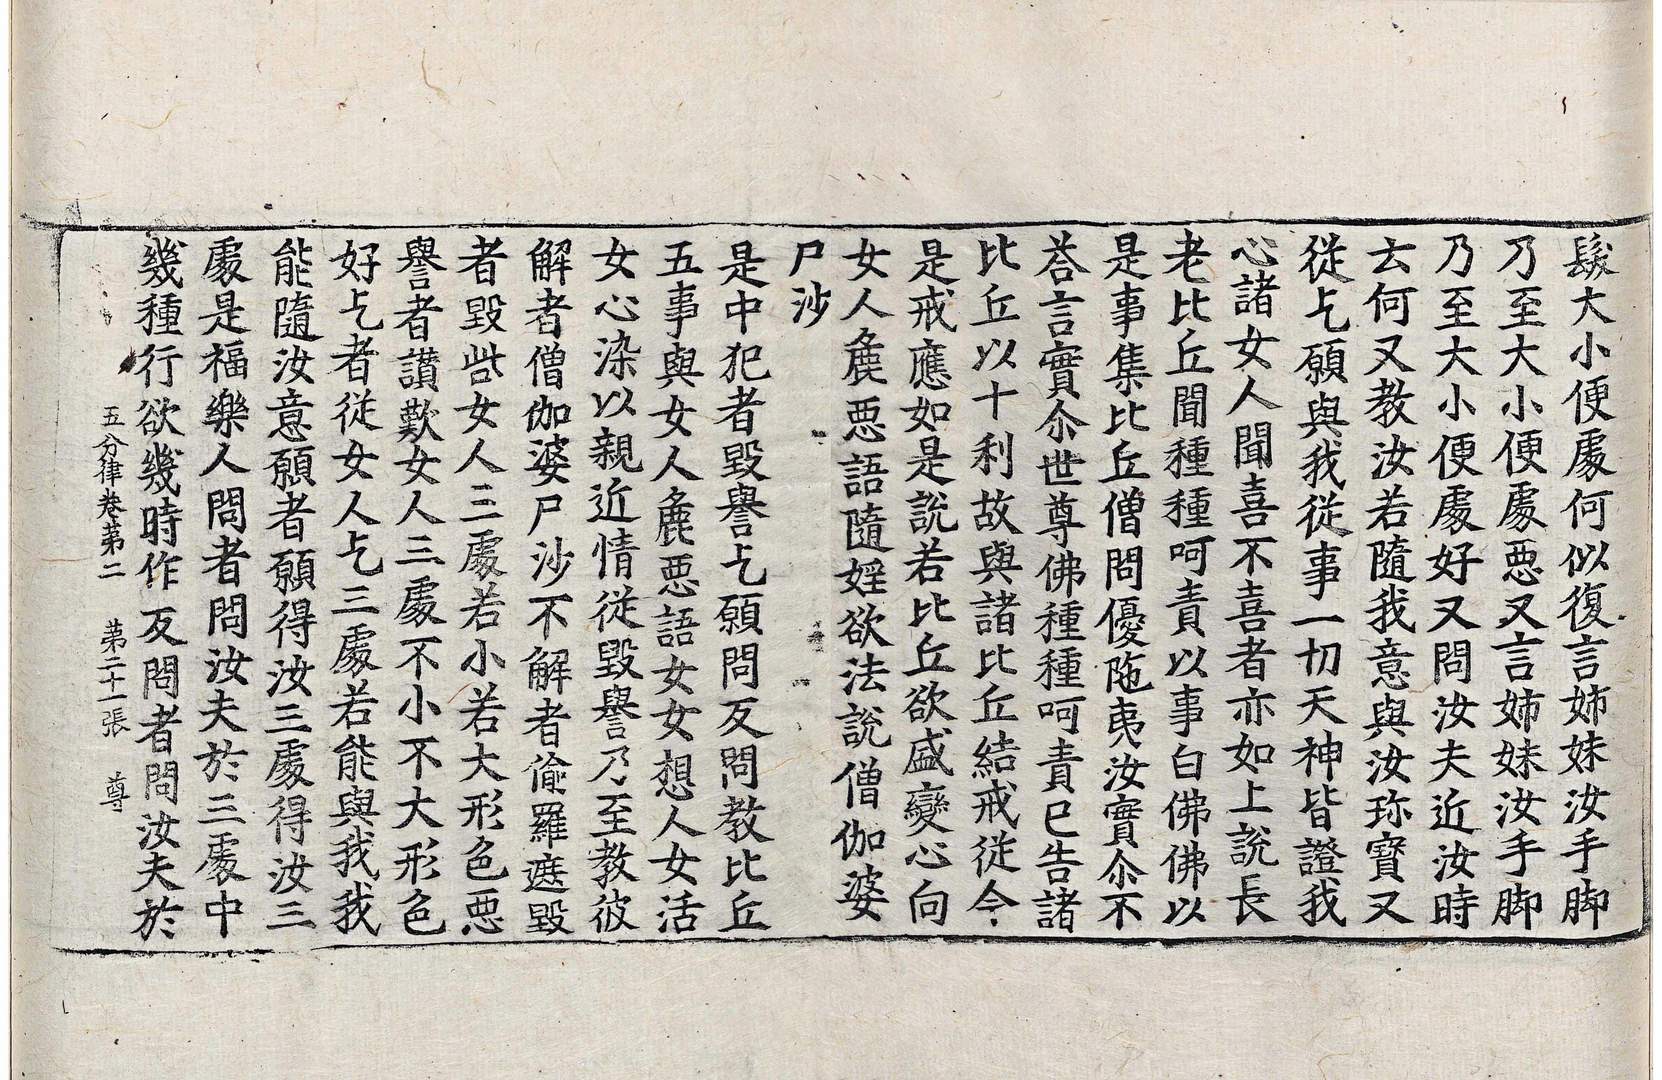 髮大小便處何似復言姊妹汝手脚
乃至大小便處惡又言姊妹汝手脚
乃至大小便處好又問汝夫近汝時
云何又教汝若隨我意與汝珎寶又
從乞願與我從事一切天神皆證我
心諸女人聞喜不喜者亦如上說長
老比丘聞種種呵責以事白佛佛以
是事集比丘僧問優陁夷汝實尒不
荅言實尒世尊佛種種呵責已告諸
比丘以十利故與諸比丘結戒從今
是戒應如是說若比丘欲盛變心向
女人麁惡語隨婬欲法說僧伽婆
尸沙
是中犯者毀譽乞願問反問教比丘
五事與女人麁惡語女女想人女活
女心染以親近情從毀譽乃至教彼
解者僧伽婆尸沙不解者偷羅遮毀
者毀呰女人三處若小若大形色惡
譽者讃歎女人三處不小不大形色
好乞者從女人乞三處若能與我我
能隨汝意願者願得汝三處得汝三
處是福樂人問者問汝夫於三處中
幾種行欲幾時作反問者問汝夫於
五分律卷第二　第二十一張　尊